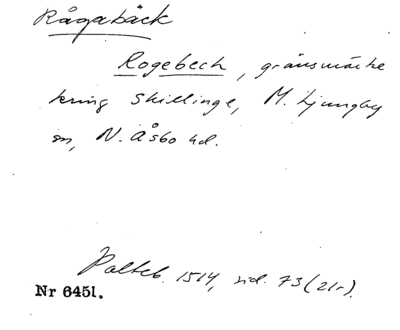 Rågabäck
Rogebech, gränsmärke
kring Skillinge, M. Ljungby
sn, N. Åsbo hd.
Palteb. 1514, sid. 73 (21r).
Nr 6451.